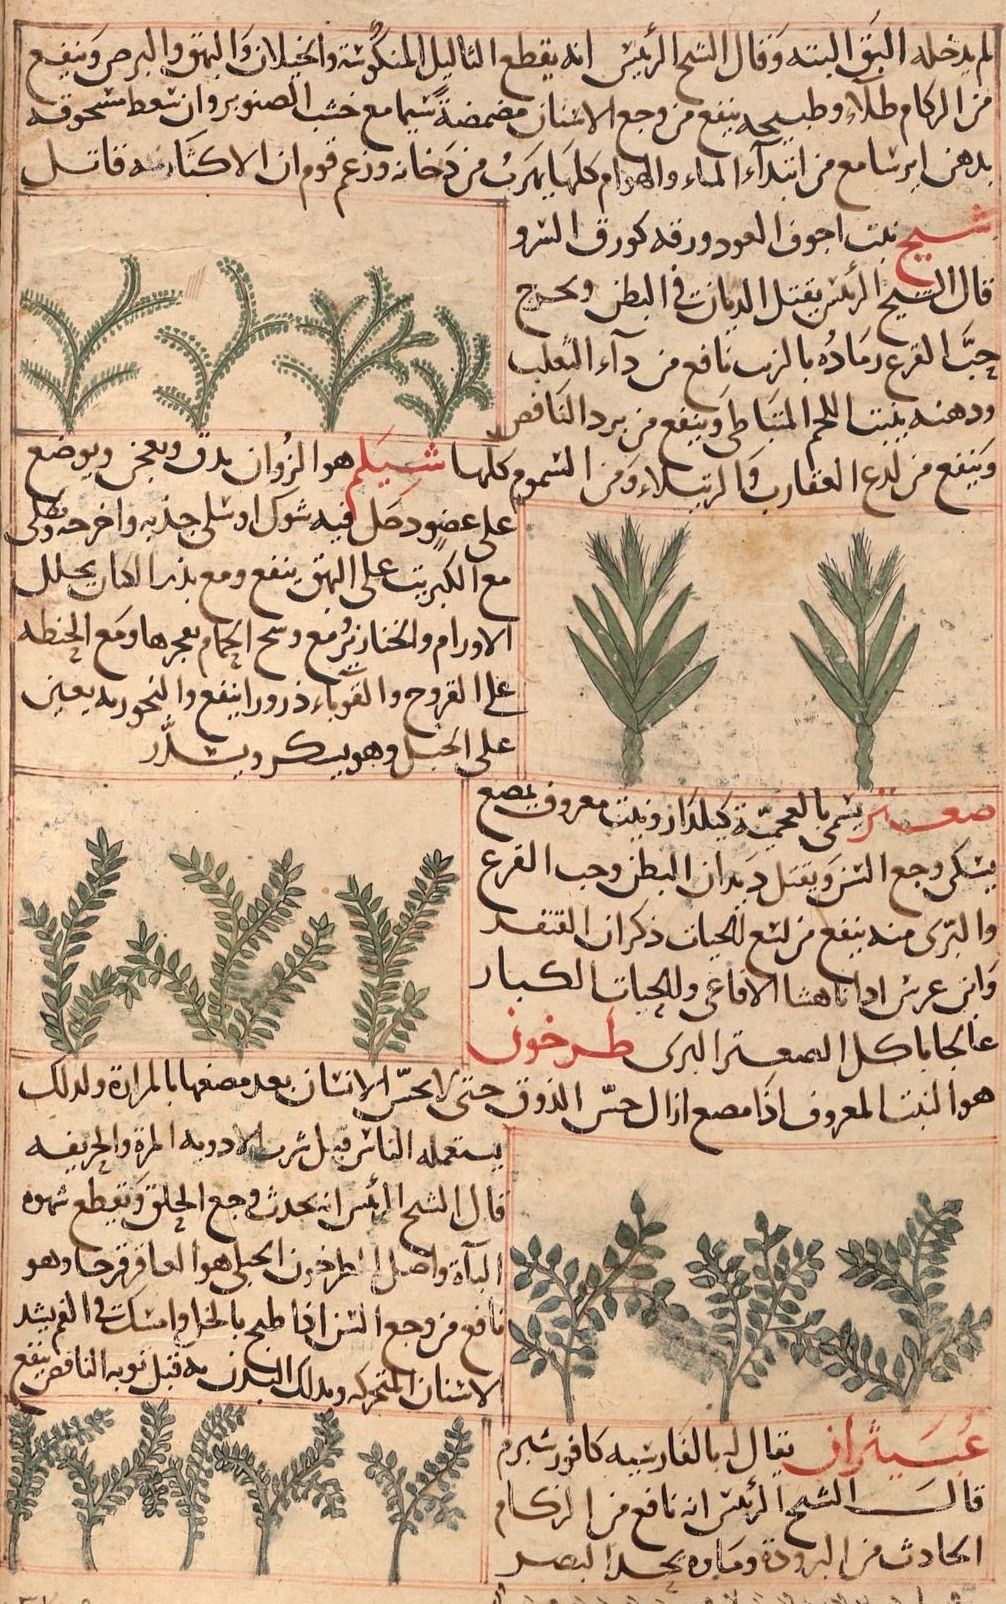 لم يدخله البق البته وقال الشيخ الرئيس انه يقطع الثاليل المنكوسة والخيلان والبهق والبرص وينفع
من الزكام طلاء وطبيخه ينفع من وجع الاسنان مضمضة سيما مع خشب الصنوبر وان سعط مسحوقه
بدهن ايرسا مع من ابتداء الماء والهوام كلها يهرب من دخانه وزعم قوم ان الاكثار منه قاتل
شيح نبت اجوف العود ورقه كورق السرو
قال الشيخ الرئيس يقتل الديدان في البطن ويخرج
حب القرع رماده بالزيت نافع من دآء الثعلب
ودهنه ينبت اللحم المتباطى وينفع من برد النافض
وينفع من لدغ العقارب والرتيلاء ومن السموم كلها
شيلم هو الزوان يدق ويعجن ويوضع
على عضو دخل فيه شوك او سلى جذبه واخرجه ويطلى
مع الكبريت على البهق ينفع ومع بذر الكتان يحلل
الاورام والخنازير مع وسخ الحمام يفجرها ومع الحنطه
على القروح والقوباء ذرورا ينفع والتبخر به يعين
على الحبل وهو يسكر ويسدر
صعتر يسمى بالعجمية كيلدارو نبت معروف يمضغ
يسكن وجع السن ويقتل ديدان البطن وحب القرع
والبرى منه ينفع من لسع الحيات ذكر ان القنفد
وابن عرس اذا ناهشا الافاعى والحيات الكبار
عالجا باكل الصعتر البرى طرخون
هو النبت المعروف اذا مضغ ازال حس الذوق حتى لا يحس الانسان بعد مضغها بالمرارة ولذلك
يستعمله الناس قبل شرب الادويه المرة والحريفه
قال الشيخ الرئيس انه يحدث وجع الحلق ويقطع شهوه
الباة واصل الطرخون الجبلى هو العاقر قرحا وهو
نافع من وجع السن اذا طبخ بالخل وامسك في الفم يشد
الاسنان المتحركه ويدلك البدن به قبل نوبه النافض ينفع
عبيثران يقال له بالفارسيه كافور سبرم
قال الشيخ الرئيس انه نافع من الزكام
الحادث من البرودة وماوه يحد البصر